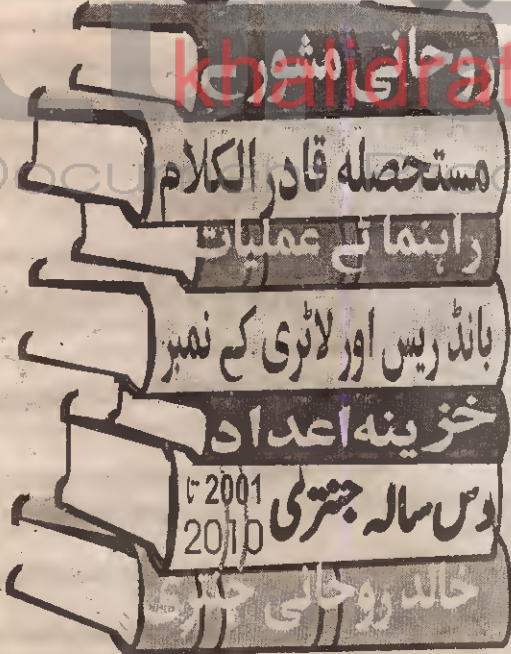 روحانی مشورے
khalidrat
مستحصلہ قادر الکلام
Docum
راہنمائے عملیات
بانڈ ریس اور لاٹری کے نمبر
خزینہ اعداد
دس سالہ جنتری 2001 تا 2010
خالد روحانی جنتری